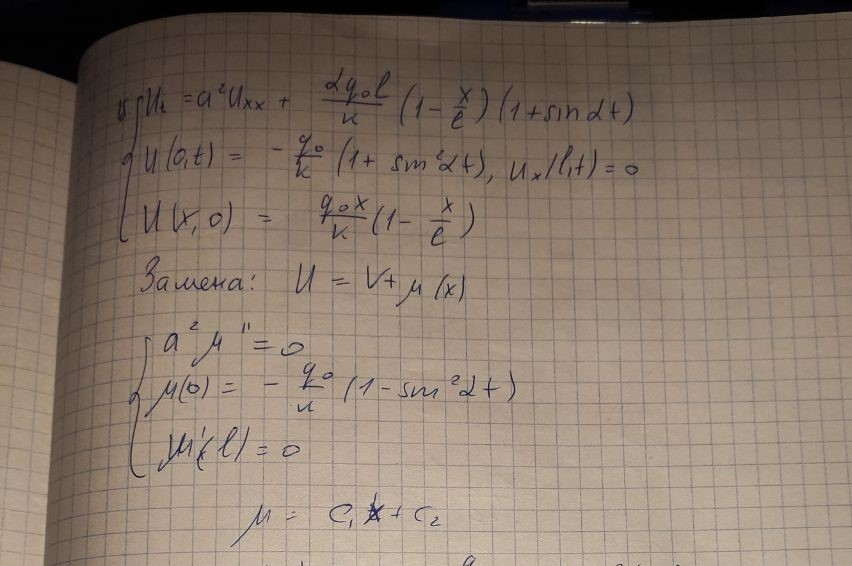 15. { u_t = a²u_xx + αq₀l/κ (1 - x/l)(1 + sin αt)
u(0,t) = - q₀/κ (1 + sin²αt), u_x(l,t) = 0
u(x,0) = q₀x/κ (1 - x/l)
Замена: u = v + μ(x)
{ a²μ'' = 0
μ(0) = - q₀/κ (1 - sin²αt)
μ'ₓ(l) = 0
μ = c₁x + c₂